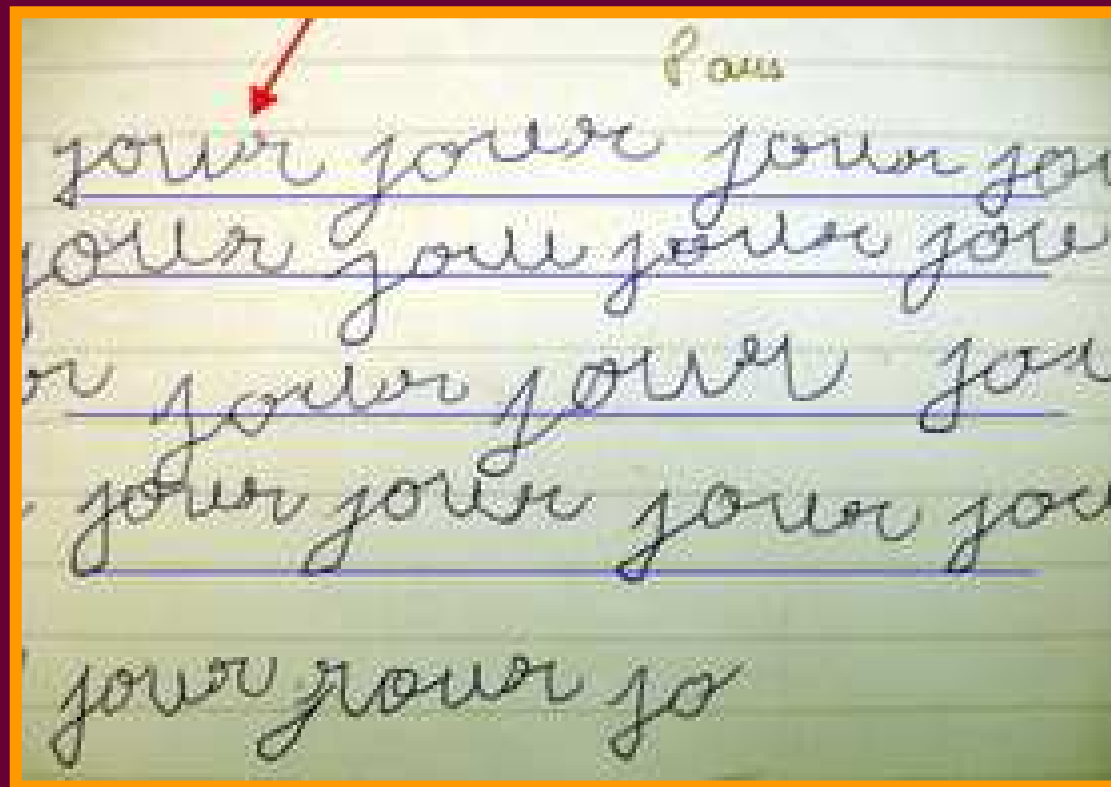 8 ans
jour jour jour jou
jour jou jour jou
jour jour jou
jour jour jour jou
jour jour jo